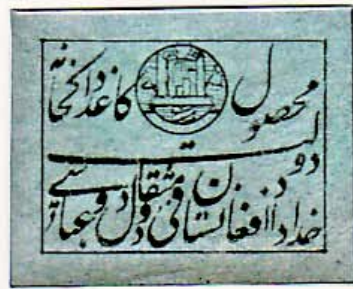 محصول کاغذ داکخانه
دولت
خداداد افغانستان فی دو مثقال دو عباسی